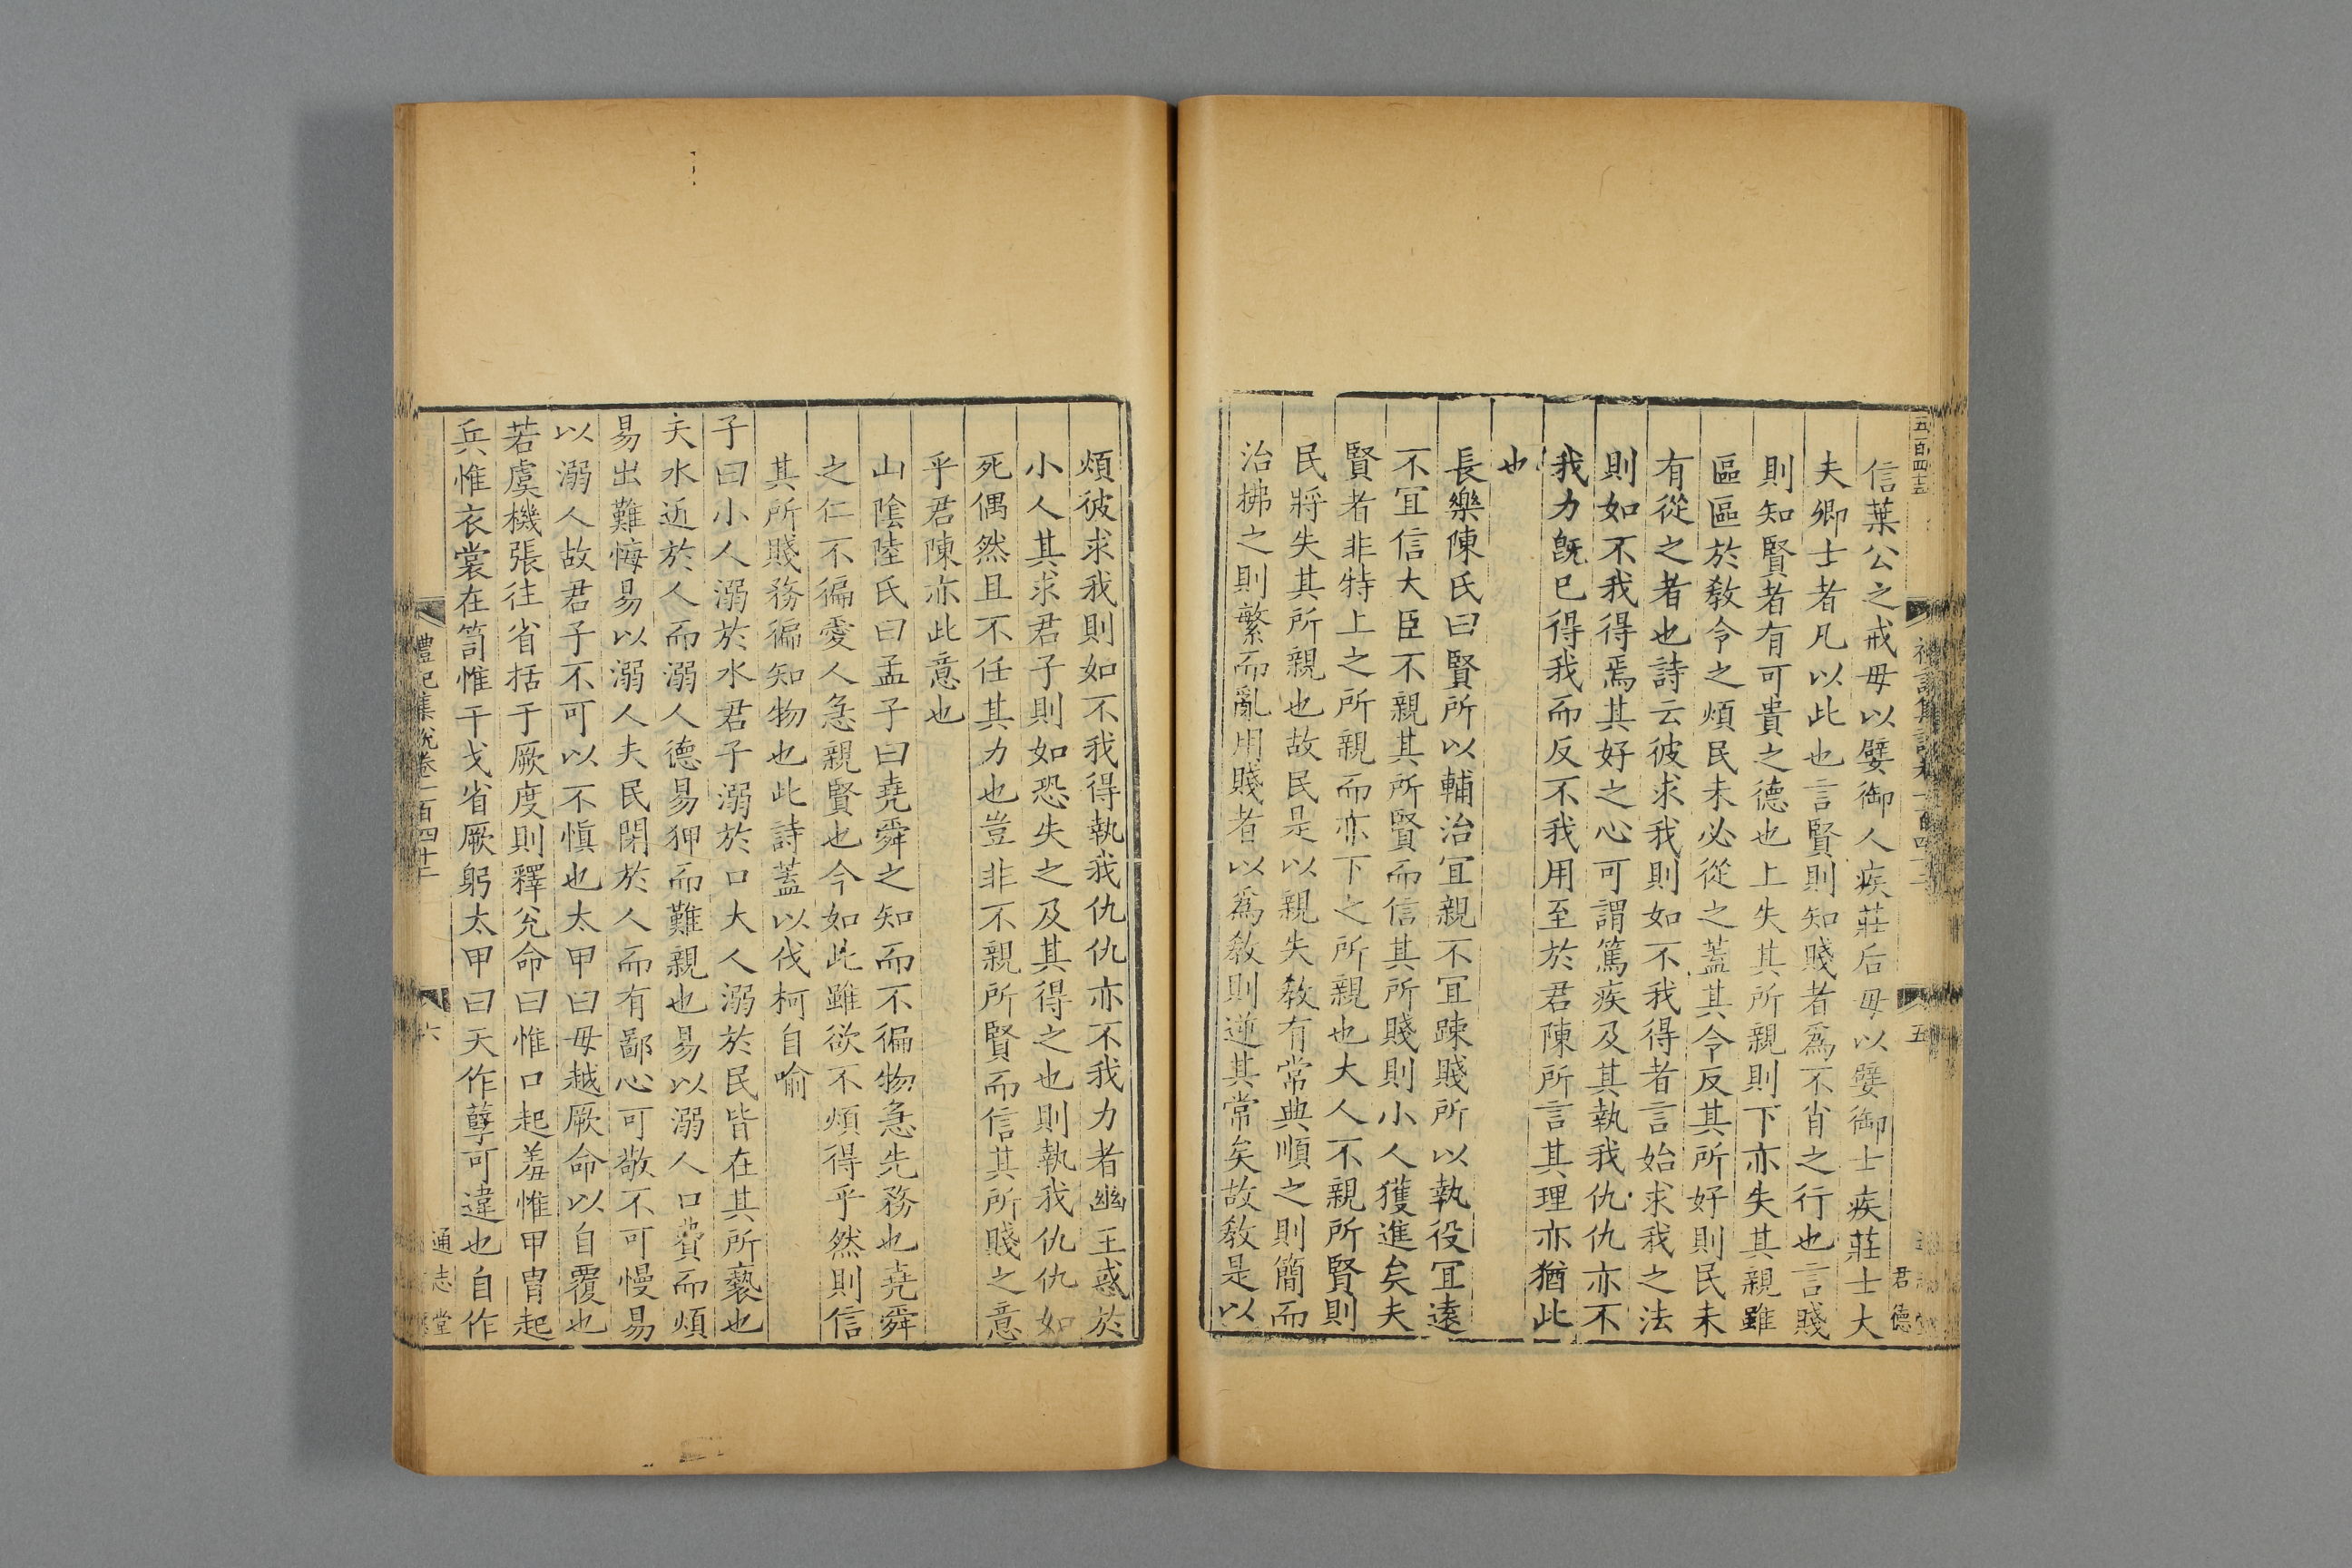 五百四十五
信葉公之戒毋以嬖御人疾莊后毋以嬖御士疾莊士大
夫卿士者凡以此也言賢則知賤者為不肖之行也言賤
則知賢者有可貴之德也上失其所親則下亦失其親雖
區區於教令之煩民未必從之蓋其令反其所好則民未
有從之者也詩云彼求我則如不我得者言始求我之法
則如不我得焉其好之心可謂篤疾及其執我仇仇亦不
我力旣已得我而反不我用至於君陳所言其理亦猶此
也
長樂陳氏曰賢所以輔治冝親不冝踈賤所以執役冝遠
不冝信大臣不親其所賢而信其所賤則小人獲進矣夫
賢者非特上之所親而亦下之所親也大人不親所賢則
民將失其所親也故民是以親失教有常典順之則簡而
治拂之則繁而亂用賤者以為教則逆其常矣故教是以
五
君德
煩彼求我則如不我得執我仇仇亦不我力者幽王惑於
小人其求君子則如恐失之及其得之也則執我仇仇如
死偶然且不任其力也豈非不親所賢而信其所賤之意
乎君陳亦此意也
山陰陸氏曰孟子曰堯舜之知而不徧物急先務也堯舜
之仁不徧愛人急親賢也今如此雖欲不煩得乎然則信
其所賤務徧知物也此詩蓋以伐柯自喻
子曰小人溺於水君子溺於口大人溺於民皆在其所褻也
夫水近於人而溺人德易狎而難親也易以溺人口費而煩
易出難悔易以溺人夫民閉於人而有鄙心可敬不可慢易
以溺人故君子不可以不慎也太甲曰毋越厥命以自覆也
若虞機張往省括于厥度則釋兊命曰惟口起羞惟甲冑起
兵惟衣裳在笥惟干戈省厥躬太甲曰天作孽可違也自作
禮記集說卷一百四十二
六
通志堂